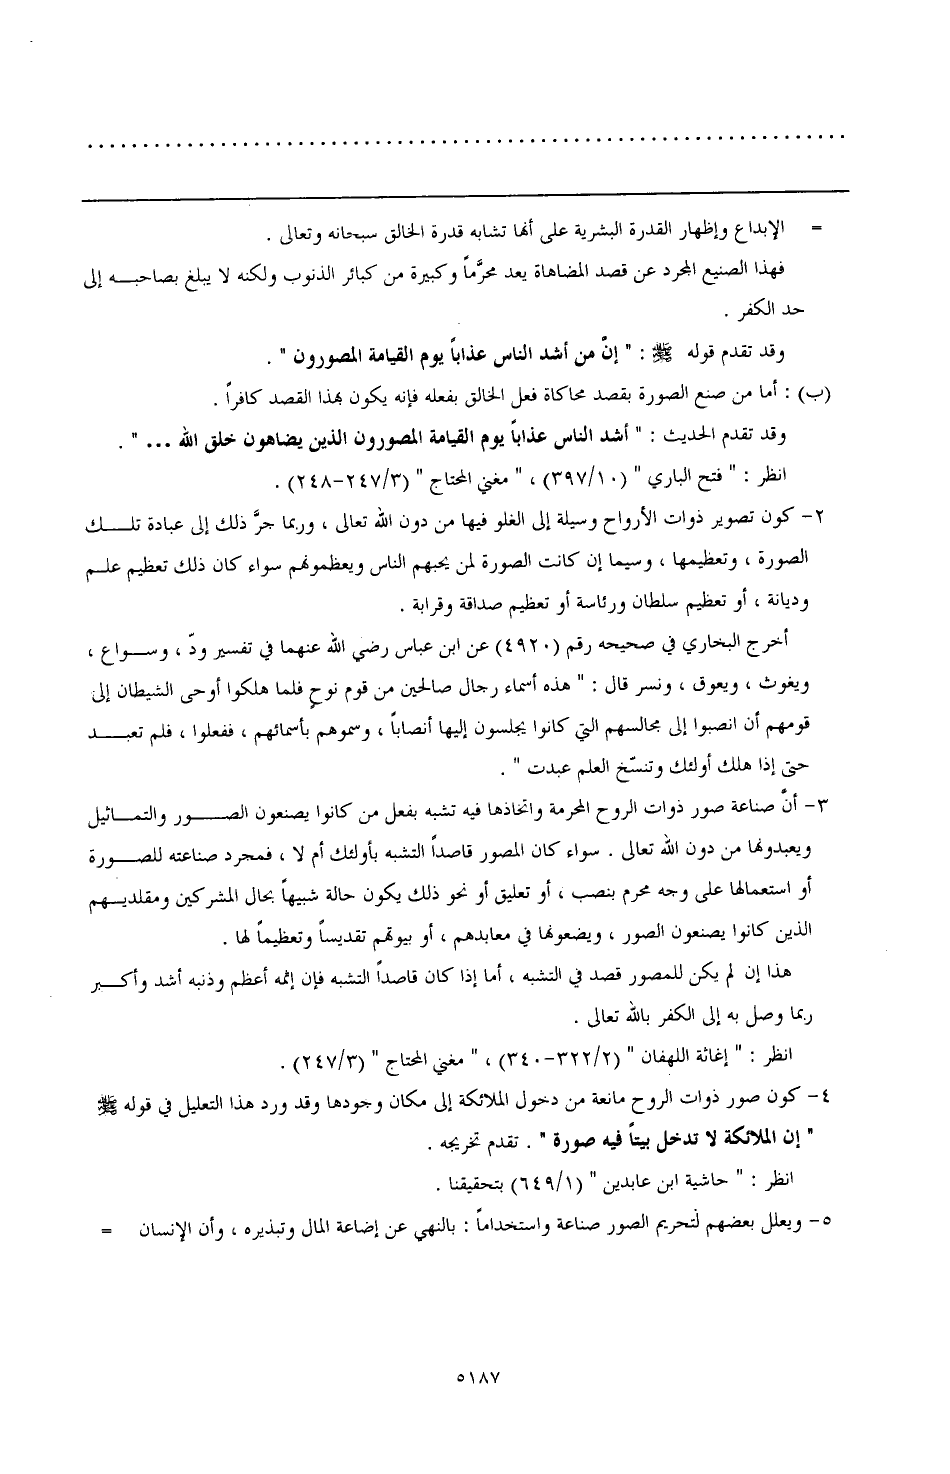 ................................................................
= الإبداع وإظهار القدرة البشرية على أنها تشابه قدرة الخالق سبحانه وتعالى .
فهذا الصنيع المجرد عن قصد المضاهاة يعد محرَّماً وكبيرة من كبائر الذنوب ولكنه لا يبلغ بصاحبه إلى
حد الكفر .
وقد تقدم قوله ﷺ : " إنَّ من أشد الناس عذاباً يوم القيامة المصورون " .
(ب) : أما من صنع الصورة بقصد محاكاة فعل الخالق بفعله فإنه يكون بهذا القصد كافراً .
وقد تقدم الحديث : " أشد الناس عذاباً يوم القيامة المصورون الذين يضاهون خلق الله ... " .
انظر : " فتح الباري " (٣٩٧/١٠) ، " مغني المحتاج " (٢٤٧/٣-٢٤٨) .
٢- كون تصوير ذوات الأرواح وسيلة إلى الغلو فيها من دون الله تعالى ، وربما جرَّ ذلك إلى عبادة تلك
الصورة ، وتعظيمها ، وسيما إن كانت الصورة لمن يحبهم الناس ويعظموهم سواء كان ذلك تعظيم علم
وديانة ، أو تعظيم سلطان ورئاسة أو تعظيم صداقة وقرابة .
أخرج البخاري في صحيحه رقم (٤٩٢٠) عن ابن عباس رضي الله عنهما في تفسير ودّ ، وسواع ،
ويغوث ، ويعوق ، ونسر قال : " هذه أسماء رجال صالحين من قوم نوحٍ فلما هلكوا أوحى الشيطان إلى
قومهم أن انصبوا إلى مجالسهم التي كانوا يجلسون إليها أنصاباً ، وسموهم بأسمائهم ، ففعلوا ، فلم تعبد
حتى إذا هلك أولئك وتنسّخ العلم عبدت " .
٣- أنَّ صناعة صور ذوات الروح المحرمة واتخاذها فيه تشبه بفعل من كانوا يصنعون الصور والتماثيل
ويعبدونها من دون الله تعالى . سواء كان المصور قاصداً التشبه بأولئك أم لا ، فمجرد صناعته للصورة
أو استعمالها على وجه محرم بنصب ، أو تعليق أو نحو ذلك يكون حالة شبيهاً بحال المشركين ومقلديهم
الذين كانوا يصنعون الصور ، ويضعونها في معابدهم ، أو بيوتهم تقديساً وتعظيماً لها .
هذا إن لم يكن للمصور قصد في التشبه ، أما إذا كان قاصداً التشبه فإن إثمه أعظم وذنبه أشد وأكبر
ربما وصل به إلى الكفر بالله تعالى .
انظر : " إغاثة اللهفان " (٣٢٢/٢-٣٤٠) ، " مغني المحتاج " (٢٤٧/٣) .
٤- كون صور ذوات الروح مانعة من دخول الملائكة إلى مكان وجودها وقد ورد هذا التعليل في قوله ﷺ
" إن الملائكة لا تدخل بيتاً فيه صورة " . تقدم تخريجه .
انظر : " حاشية ابن عابدين " (٦٤٩/١) بتحقيقنا .
٥- ويعلل بعضهم لتحريم الصور صناعة واستخداماً : بالنهي عن إضاعة المال وتبذيره ، وأن الإنسان =
٥١٨٧